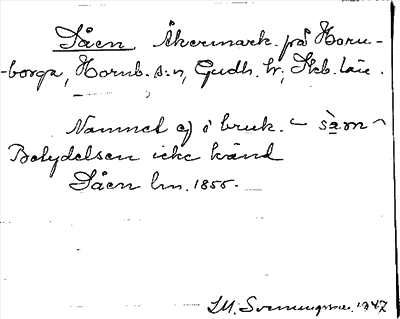 Såen, Åkermark på Horn-
-borga, Hornb. s:n, Gudh. hr, Skb. län.
Namnet ej i bruk. – sàm –
Betydelsen icke känd
Såen lm. 1855.
I.M. Svenungsson. 1947